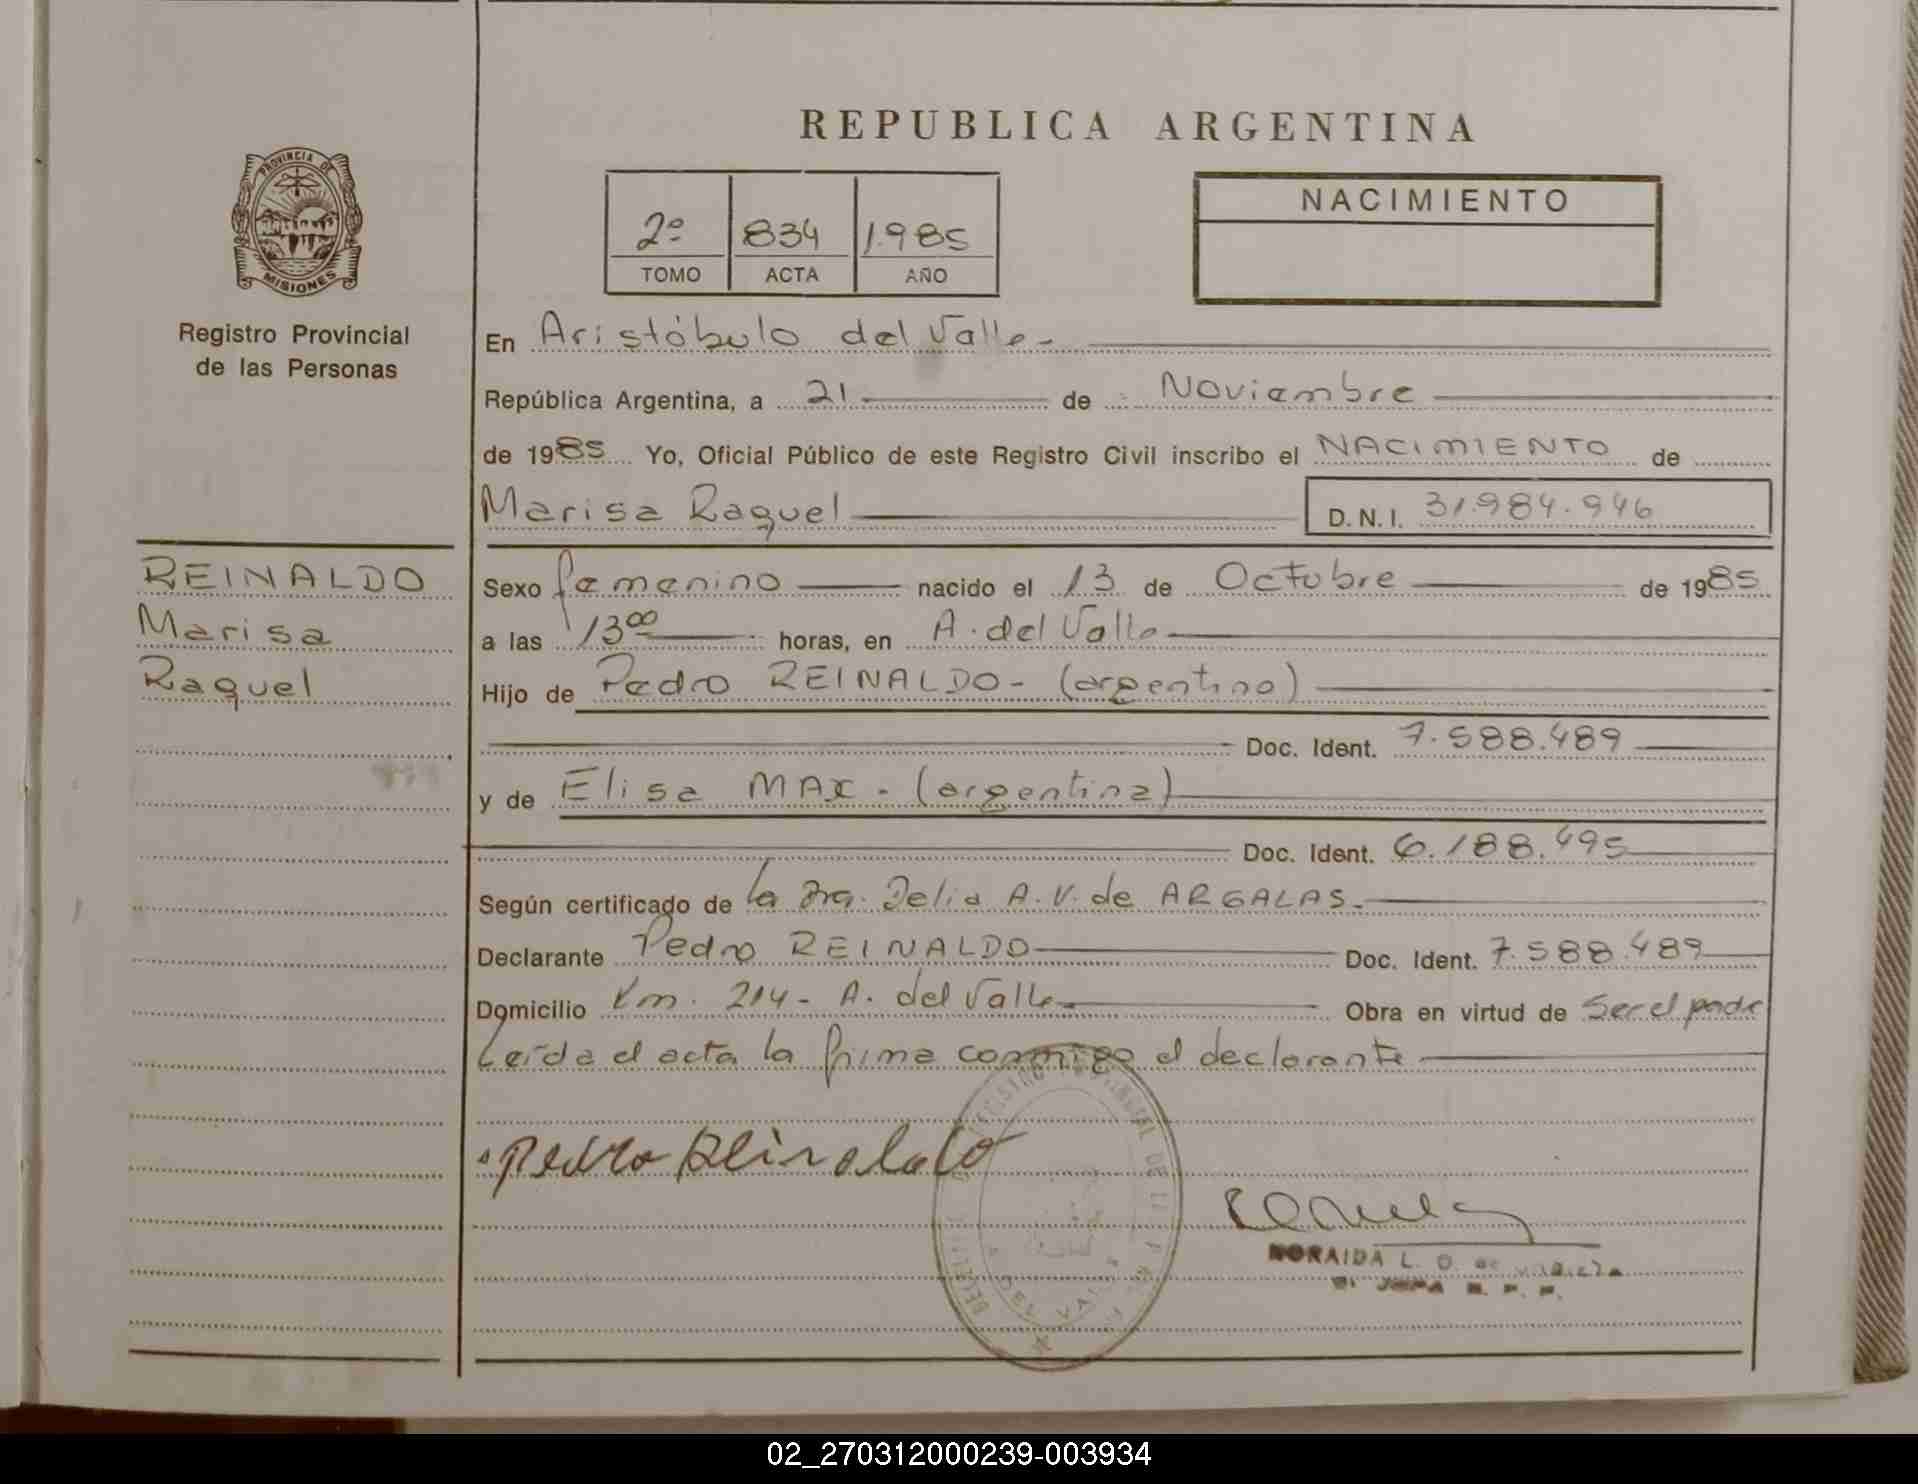 REPUBLICA ARGENTINA
PROVINCIA DE
MISIONES
Registro Provincial
de las Personas
2º 834 1.985
TOMO ACTA AÑO
NACIMIENTO
En Aristóbulo del Valle-
República Argentina, a 21 de Noviembre
de 1985 Yo, Oficial Público de este Registro Civil inscribo el NACIMIENTO de
Marisa Raquel D.N.I. 31.984.946
REINALDO
Marisa
Raquel
Sexo femenino nacido el 13 de Octubre de 1985
a las 13⁰⁰ horas, en A. del Valle
Hijo de Pedro REINALDO- (argentino)
Doc. Ident. 7.588.489
y de Elisa - (argentina)
Doc. Ident. 6.188.495
Según certificado de la Dra. Delia A. V. de ARGALAS.
Declarante Pedro REINALDO Doc. Ident. 7.588.489
Domicilio Km. 214- A. del Valle Obra en virtud de Ser el padre
Leída el acta la firma conmigo el declarante
Pedro Reinaldo
NORAIDA L. O. de
02_270312000239-003934